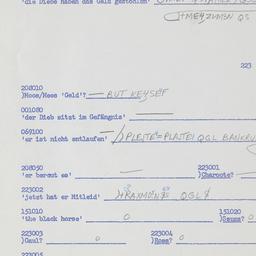 'die Diebe haben das Geld gestohlen'
223
208010
)Moos/Moes 'Geld'? — BUT KEYSEF
001080
'der Dieb sitzt im Gefängnis'
069100
'er ist nicht entlaufen' QGL BANKRU
208050
'er bereut es' —
223001
)Charoote? —
223002
'jetzt hat er Mitleid' QGL
151010
'the black horse' 0
151020
)Szuss? 0
223003
)Gaul? 0
223004
)Ross? 0
223005